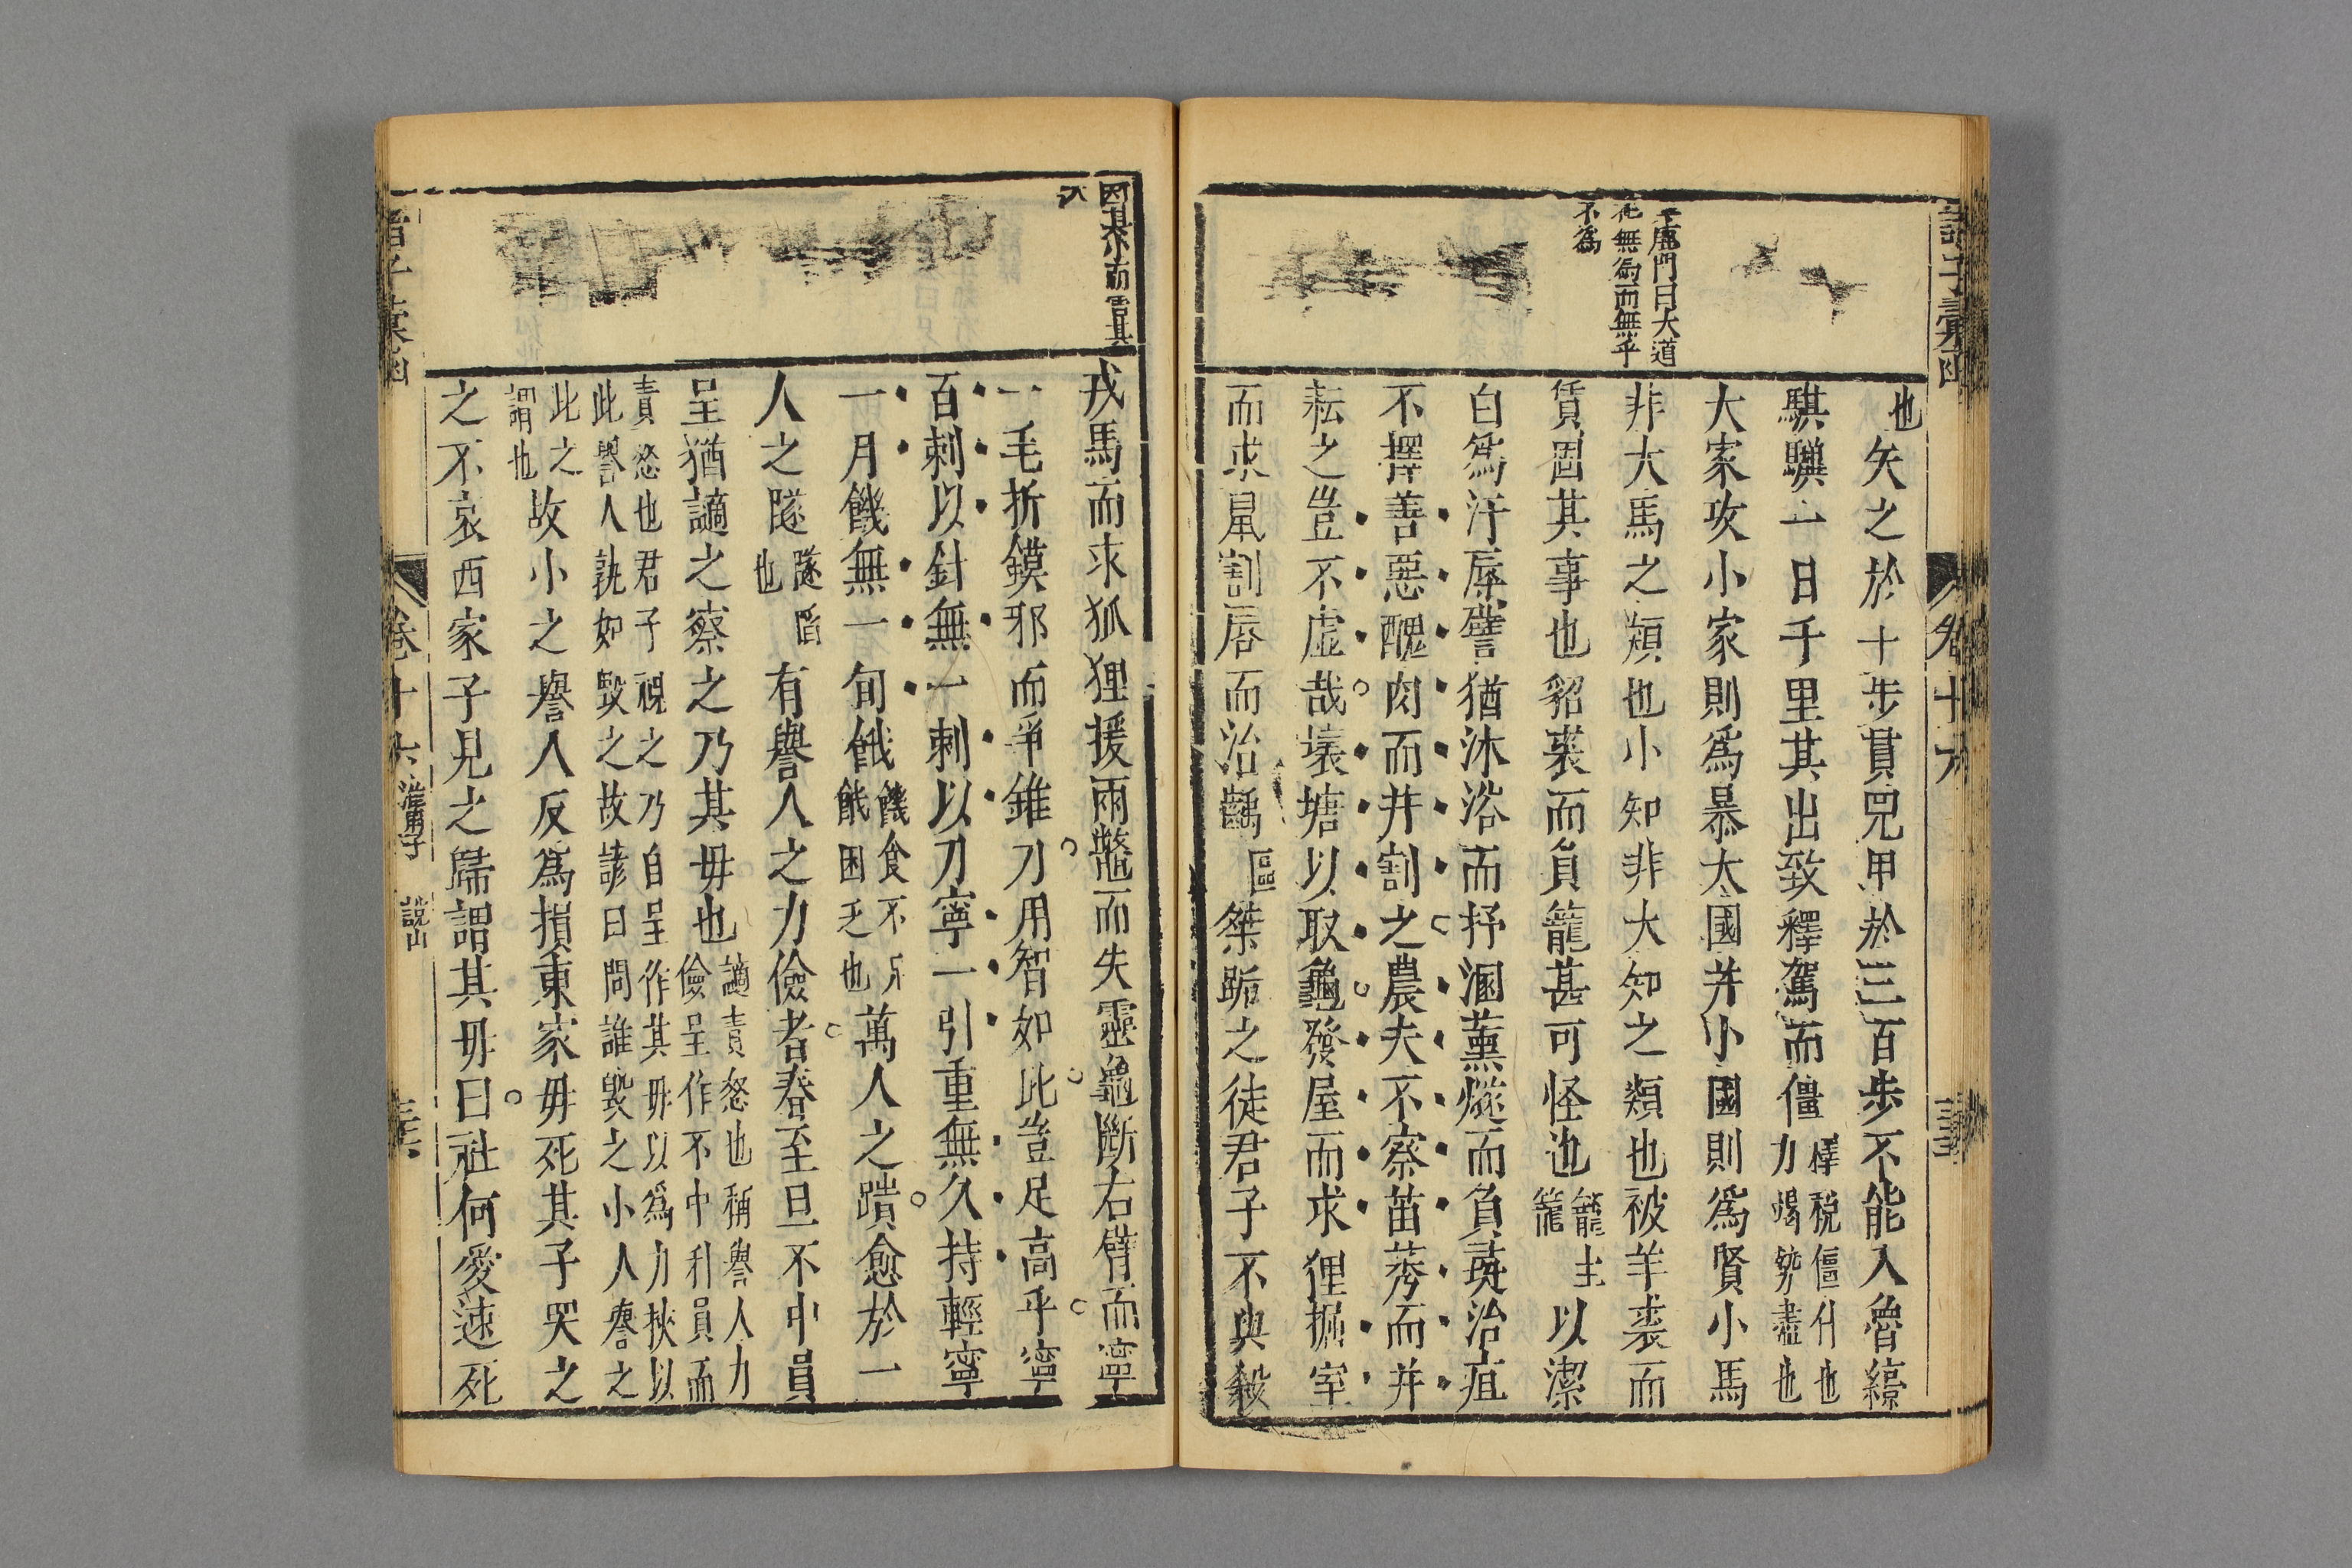 王虛門曰大道
在無為而無乎
不為
也矢之於十步貫兕甲於三百步不能入魯縞
騏驥一日千里其出致釋駕而僵釋税僵仆也力竭勢盡也
大家攻小家則爲暴大國并小國則爲賢小馬
非大馬之類也小知非大知之類也被羊裘而
賃固其事也貂裘而負籠甚可怪也籠土籠以潔
白爲汙辱譬猶沐浴而抒溷薰燧而負彘治疽
不擇善惡醜肉而并割之農夫不察苗莠而并
耘之豈不虛哉壞塘以取龜發屋而求狸掘室
而求鼠割唇而治齲區桀跖之徒君子不與殺
戎馬而求狐狸援兩鼈而失靈龜斷右臂而寧
一毛折鏌邪而爭錐刀用智如此豈足高乎寧
百刺以針無一刺以刀寧一引重無久持輕寧
一月饑無一旬餓饑食不足餓困乏也萬人之蹟愈於一
人之隧隧陷也有譽人之力儉者春至旦不中員
呈猶謫之察之乃其毋也謫責怒也稱譽人力儉呈作不中科員而
責怒也君子視之乃自呈作其毋以爲力挾以此譽人孰如毀之故諺曰問誰毀之小人譽之
此之謂也故小之譽人反爲損東家毋死其子哭之
之不哀西家子見之歸謂其毋曰社何愛速死
卷十六 淮南子 說山